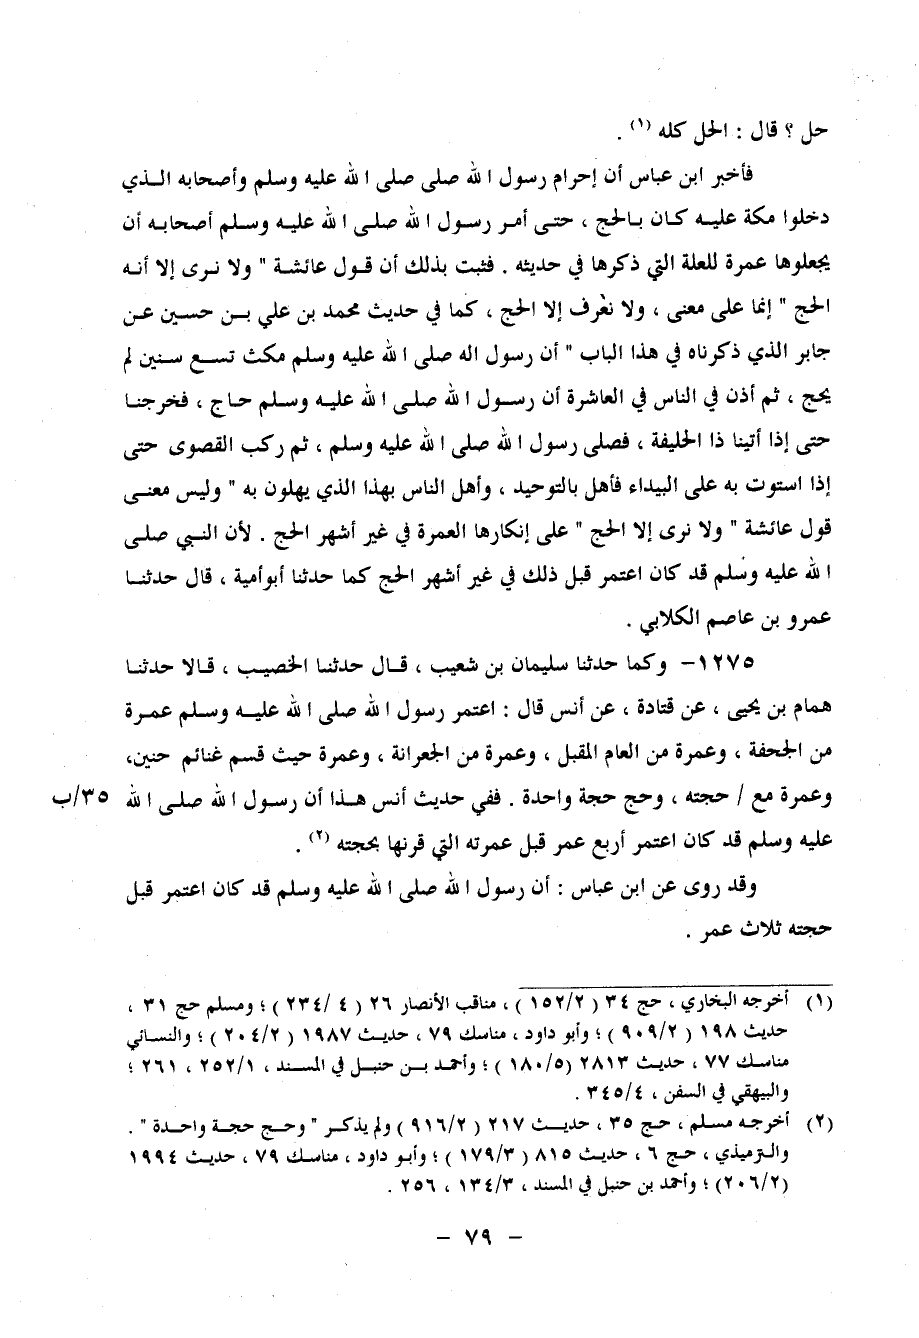 حل ؟ قال : الحل كله (١) .
فأخبر ابن عباس أن إحرام رسول الله صلى صلى الله عليه وسلم وأصحابه الذي
دخلوا مكة عليه كان بالحج ، حتى أمر رسول الله صلى الله عليه وسلم أصحابه أن
يجعلوها عمرة للعلة التي ذكرها في حديثه . فثبت بذلك أن قول عائشة " ولا نرى إلا أنه
الحج " إنما على معنى ، ولا نعرف إلا الحج ، كما في حديث محمد بن علي بن حسين عن
جابر الذي ذكرناه في هذا الباب " أن رسول اله صلى الله عليه وسلم مكث تسع سنين لم
يحج ، ثم أذن في الناس في العاشرة أن رسول الله صلى الله عليه وسلم حاج ، فخرجنا
حتى إذا أتينا ذا الحليفة ، فصلى رسول الله صلى الله عليه وسلم ، ثم ركب القصوى حتى
إذا استوت به على البيداء فأهل بالتوحيد ، وأهل الناس بهذا الذي يهلون به " وليس معنى
قول عائشة " ولا نرى إلا الحج " على إنكارها العمرة في غير أشهر الحج . لأن النبي صلى
الله عليه وسلم قد كان اعتمر قبل ذلك في غير أشهر الحج كما حدثنا أبوأمية ، قال حدثنا
عمرو بن عاصم الكلابي .
١٢٧٥- وكما حدثنا سليمان بن شعيب ، قال حدثنا الخصيب ، قالا حدثنا
همام بن يحيى ، عن قتادة ، عن أنس قال : اعتمر رسول الله صلى الله عليه وسلم عمرة
من الجحفة ، وعمرة من العام المقبل ، وعمرة من الجعرانة ، وعمرة حيث قسم غنائم حنين،
وعمرة مع / حجته ، وحج حجة واحدة . ففي حديث أنس هذا أن رسول الله صلى الله ٣٥/ب
عليه وسلم قد كان اعتمر أربع عمر قبل عمرته التي قرنها بحجته (٢) .
وقد روى عن ابن عباس : أن رسول الله صلى الله عليه وسلم قد كان اعتمر قبل
حجته ثلاث عمر .
(١) أخرجه البخاري ، حج ٣٤ ( ١٥٢/٢ ) ، مناقب الأنصار ٢٦ ( ٤ /٢٣٤ ) ؛ ومسلم حج ٣١ ،
حديث ١٩٨ ( ٩٠٩/٢ ) ؛ وأبو داود ، مناسك ٧٩ ، حديث ١٩٨٧ ( ٢٠٤/٢ ) ؛ والنسائي
مناسك ٧٧ ، حديث ٢٨١٣ (١٨٠/٥ ) ؛ وأحمد بن حنبل في المسند ، ٢٥٢/١ ، ٢٦١ ؛
والبيهقي في السفن ، ٣٤٥/٤ .
(٢) أخرجه مسلم ، حج ٣٥ ، حديث ٢١٧ ( ٩١٦/٢ ) ولم يذكر " وحج حجة واحدة " .
والترميذي ، حج ٦ ، حديث ٨١٥ ( ١٧٩/٣ ) ؛ وأبو داود ، مناسك ٧٩ ، حديث ١٩٩٤
(٢٠٦/٢) ؛ وأحمد بن حنبل في المسند ، ١٣٤/٣ ، ٢٥٦ .
- ٧٩ -